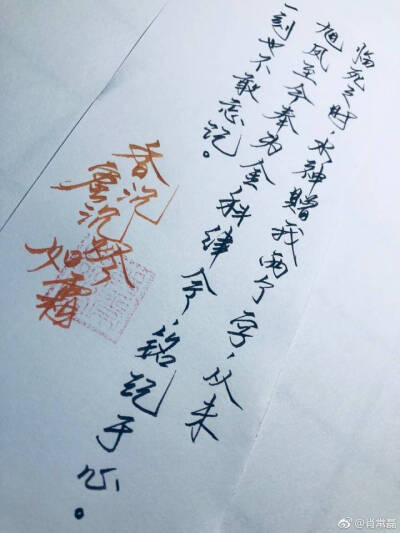 临死之时，水神赠我两个字，从未
旭风至今奉为金科律令，铭记于心。
一刻也不敢忘记。
香沉
蜜沉烬
如霜
@肖常磊